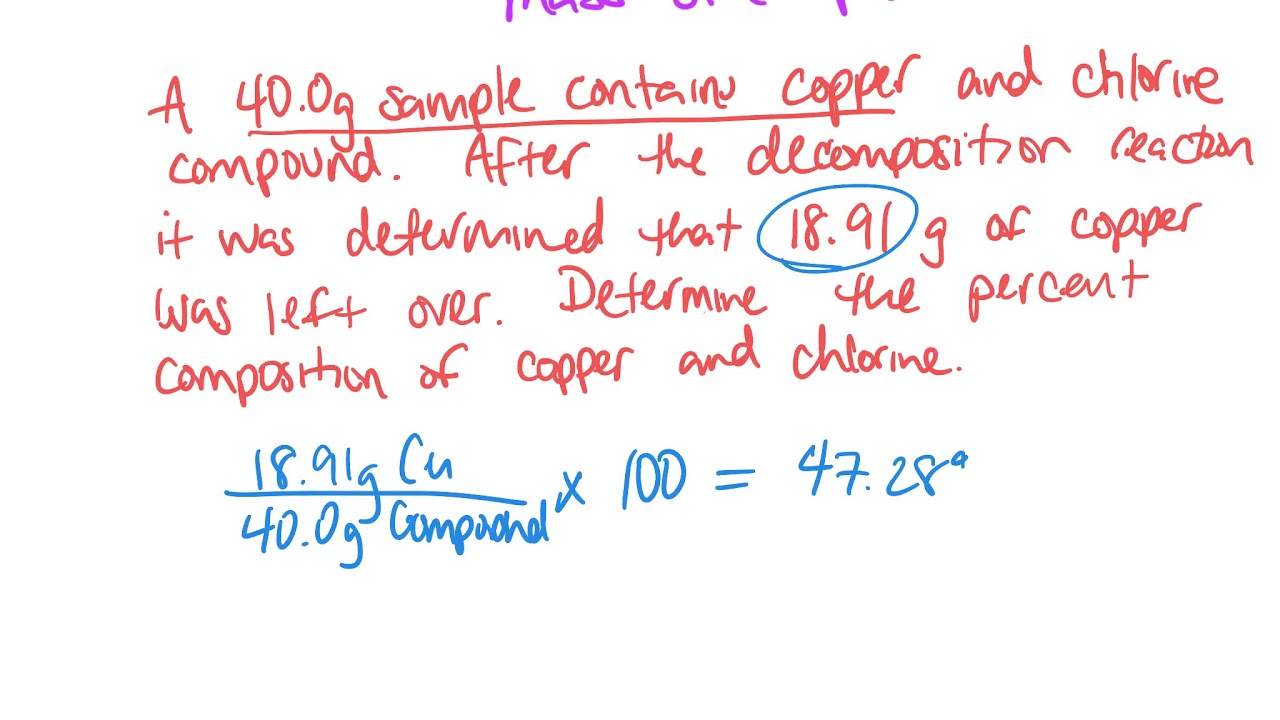 A 40.0g sample contains copper and chlorine
compound. After the decomposition reaction
it was determined that 18.91 g of copper
was left over. Determine the percent
composition of copper and chlorine.
18.91g Cu
40.0g Compound
x 100 = 47.28